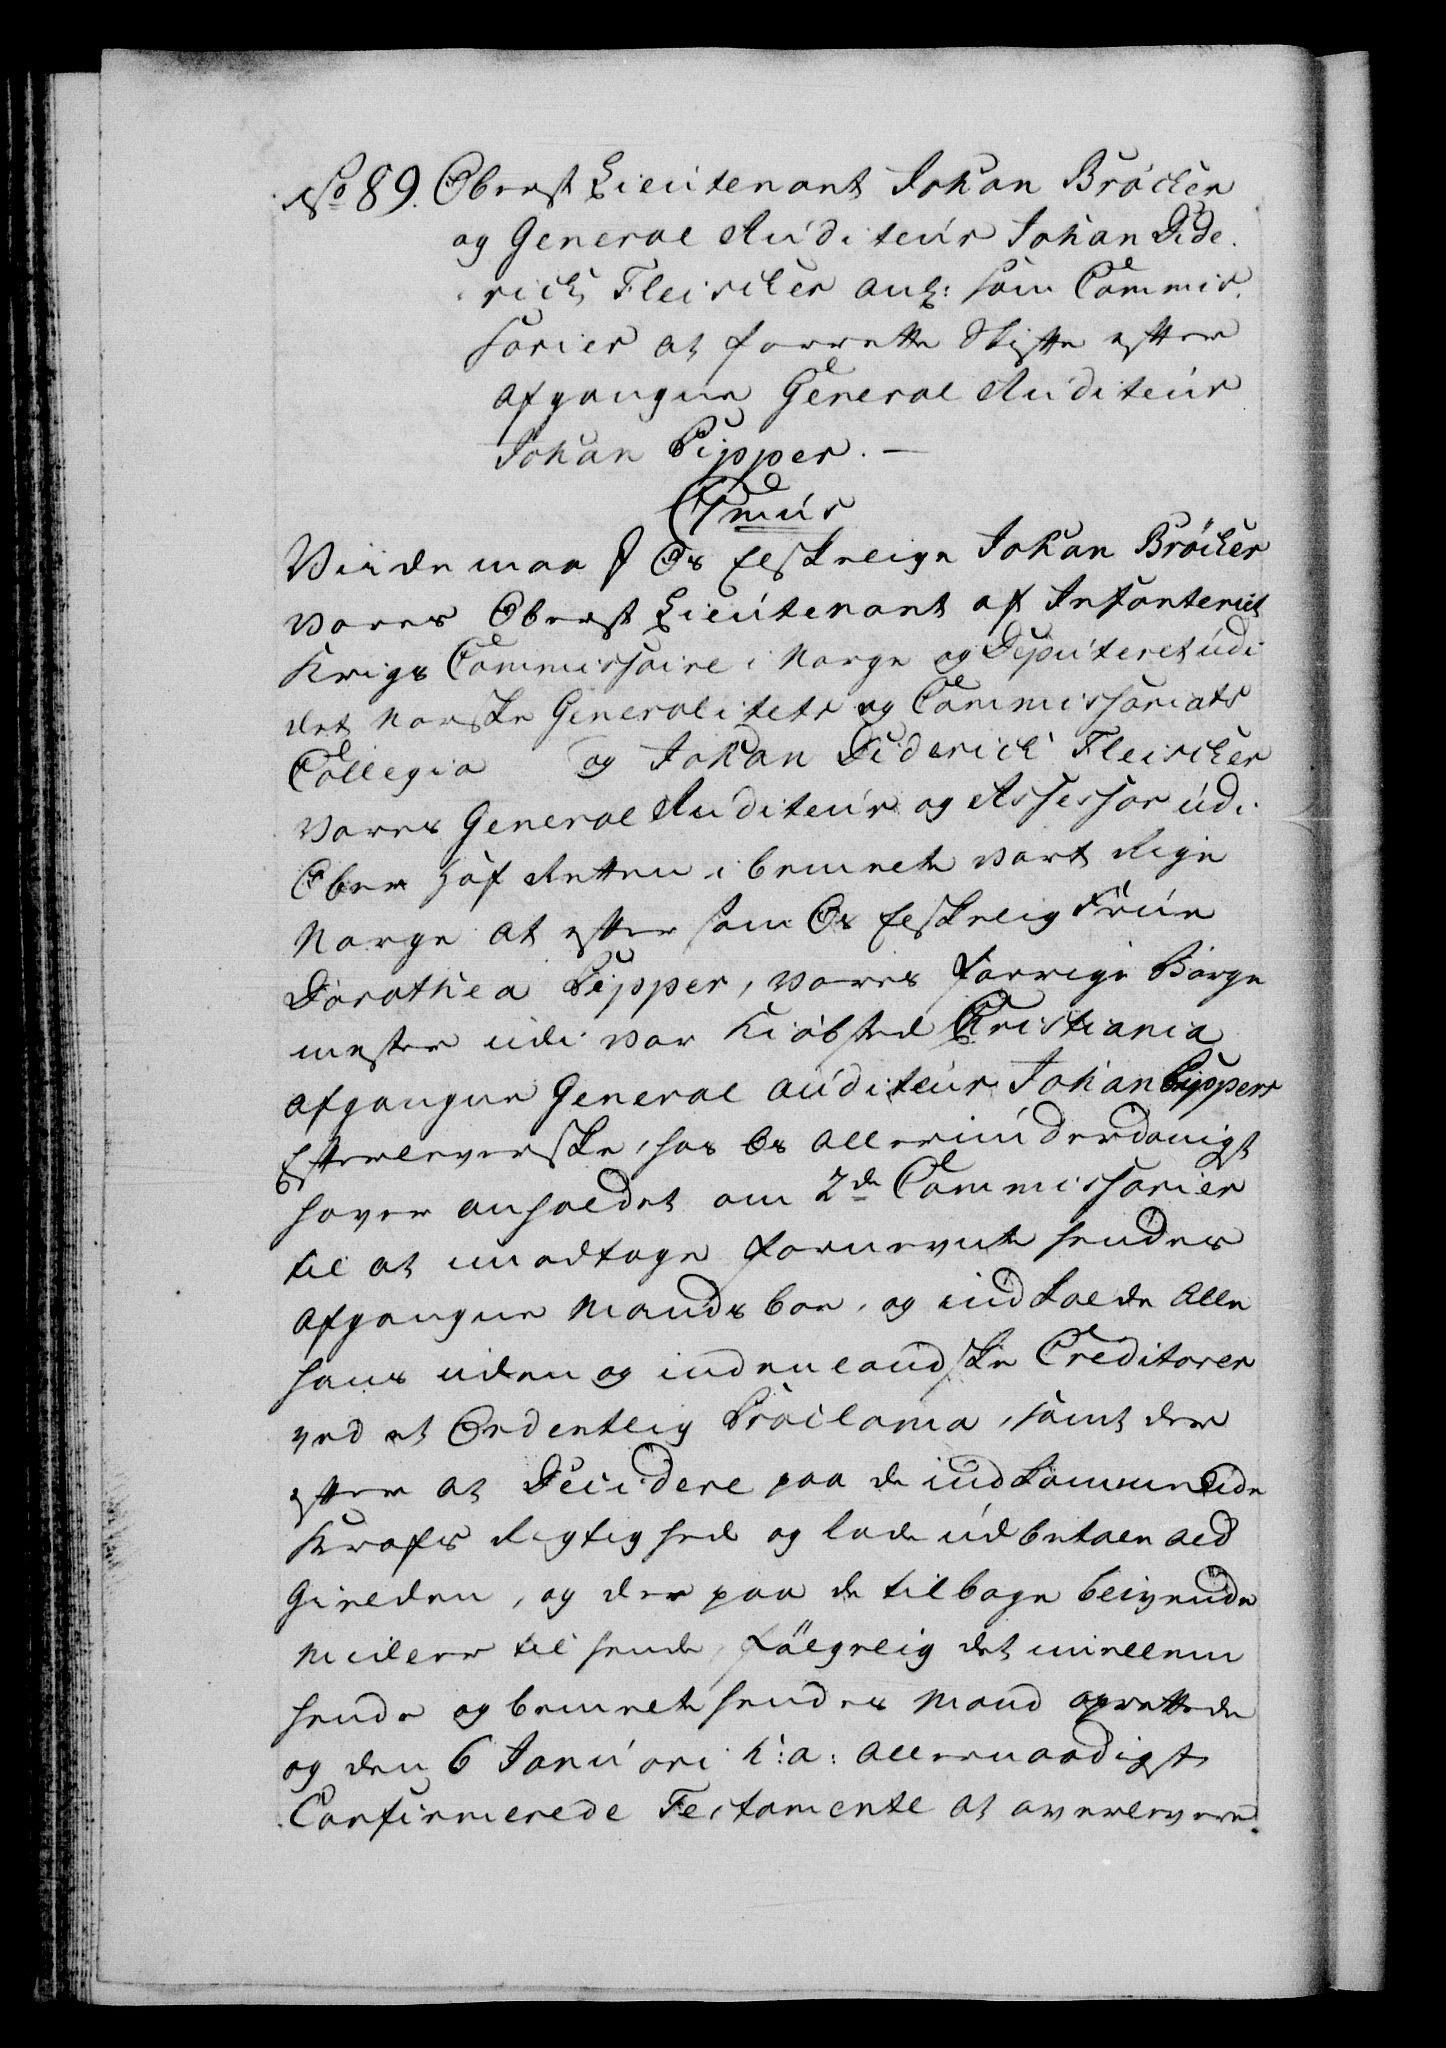 No 89. Oberst Lieutenant Johan Bröcker
og General Auditeur Johan Dide-
rich Fleischer ang: som Commis-
sarier at forrette Skifte efter
afgangne General Auditeur
Johan Pipper. —
C 7mus
Viide maa I Os Elskelige Johan Bröcker
vores Oberst Lieutenant af Infanteriet
Krigs Commissaire i Norge og Deputeret udi
det Norske Generalitets og Commissariats
Collegio og Johan Diderich Fleischer
vores General Auditeur og Assessor udi
Ober Hof Retten i bemelte vort Rige
Norge at efter som Os Elskelig Frue
Dorothea Pipper, vores forrige Borge
mester udi vor Kiöbsted Christiania
afgangne General auditeur Johan Pippers
Efterleverske, hos Os allerunderdanigst
haver anholdet om 2de Commissarier
til at modtage fornevnte hendes
afgangne Mands boe, og indkalde alle
hans uden og indenlandske Creditorer
ved et Ordentlig Proclama, samt der
efter at Decidere paa de indkommende
Krafs Rigtighed og lade udbetale ald
Gielden, og der paa de tilbage blivende
Midler til hende, fölgelig det imellem
hende og bemelte hendes Mand oprettede
og den 6 Januari h: a: allernaadigst
Confirmerede Testamente at overlevere